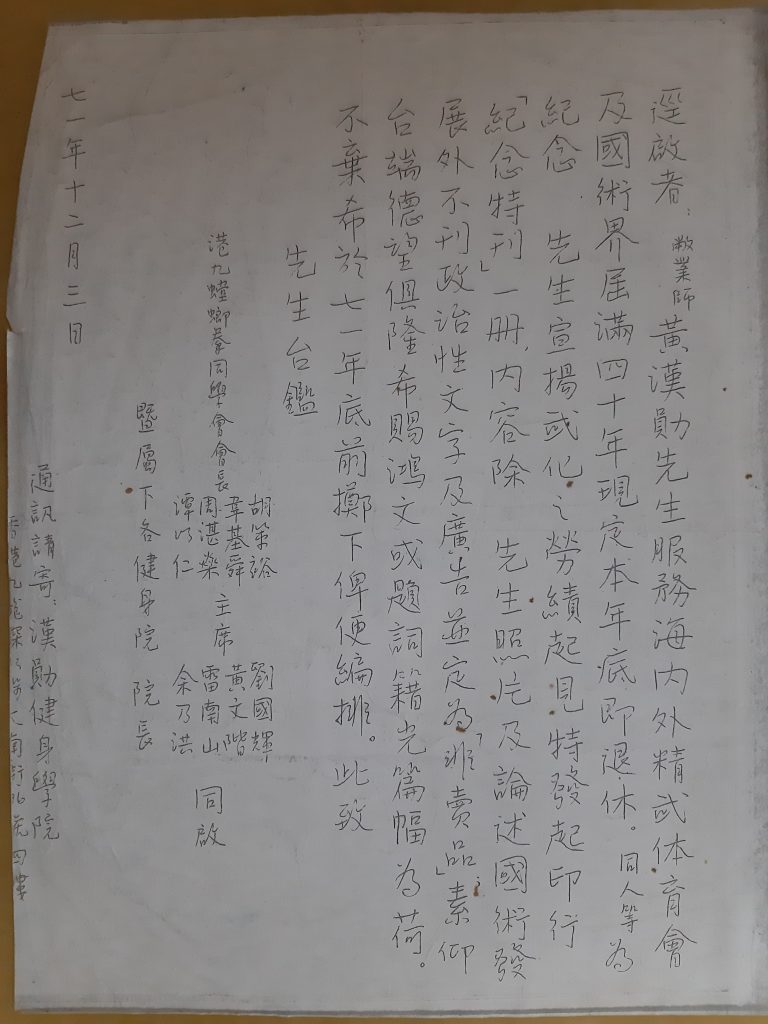 逕啟者：敝業師黃漢勛先生服務海內外精武体育會
及國術界屆滿四十年現定本年底即退休。同人等為
紀念　先生宣揚武化之勞績起見特發起印行
「紀念特刊」一冊，內容除　先生照片及論述國術發
展外不刊政治性文字及廣告並定為「非賣品」素仰
台端德望俱隆希賜鴻文或題詞藉光篇幅為荷。
不棄希於七一年底前擲下俾便編排。此致
先生台鑑
港九螳螂拳同學會會長
胡笨裕
韋基舜
周湛燊
譚以仁
主席
劉國輝
黃文階
雷南山
余乃洪
同啟
暨屬下各健身院 院長
七一年十二月三日
通訊請寄：漢勛健身學院
香港九龍深水埗